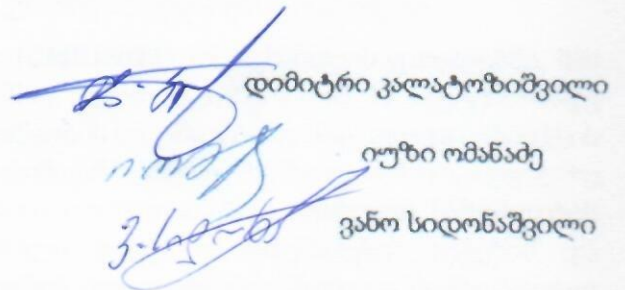 დიმიტრი კალატოზიშვილი
იუზი ომანაძე
ვანო სიდონაშვილი